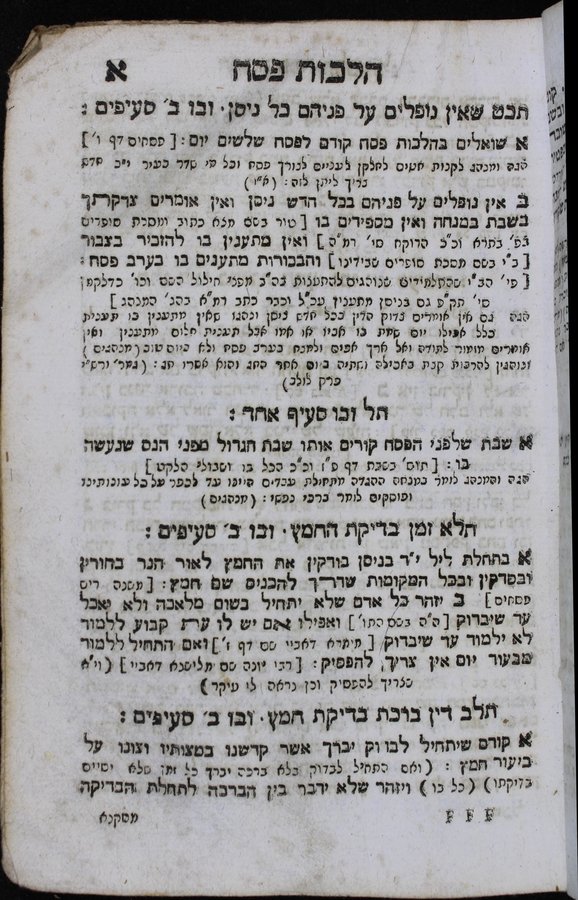 הלכות פסח א
תכט שאין נופלים על פניהם כל ניסן · ובו ב׳ סעיפים :
א שואלים בהלכות פסח קודם לפסח שלשים יום : [ פסחים דף ו׳ ]
הגה ומנהג לקנות חטים לחלקן לעניים לצורך פסח וכל מי שדר בעיר י״ב חדש
צריך ליתן לזה : ( א״ז )
ב אין נופלים על פניהם בכל חדש ניסן ואין אומרים צדקתך
בשבת במנחה ואין מספידים בו [ טור בשם מנא כתוב ומסכת סופרים
ואין מתענין בו להזכיר בצבור
[ ב״י בשם מסכת סופרים שבידינו ] והבכורות מתענים בו בערב פסח :
סי׳ תק״פ גם בניסן מתענין עכ״ל וכבר כתב רמ״א בהג׳ המנהג ]
הגה גם אין אומרים צדוק הדין בכל חדש ניסן ונהגו שאין מתענין בו תענית
כלל אפילו יום שמת בו אביו או אמו אבל תענית חלום מתענין ואין
אומרים מזמור לתודה ואל ארך אפים ולמנצח בערב פסח ולא ביום טוב ( מנהגים )
ונוהגין להרבות קצת באכילה ושתיה ביום אחר החג והוא אסרו חג : ( גמר׳ ורש״י
פרק לולב )
תל ובו סעיף אחד :
א שבת שלפני הפסח קורים אותו שבת הגדול מפני הנס שנעשה
בו : [ תוס׳ בשבת דף פ״ז וכ״כ הכל בו ושבולי הלקט ]
הגה והמנהג לומר במנחה ההגדה מתחלת עבדים היינו עד לכפר על כל עונותינו
ופוסקים לומר ברכי נפשי : ( מנהגים )
תלא זמן בדיקת החמץ · ובו ב׳ סעיפים :
א בתחלת ליל י״ד בניסן בודקין את החמץ לאור הנר בחורין
ובסדקין ובכל המקומות שדרך להכניס שם חמץ : [ משנה ריש
פסחים ] ב יזהר כל אדם שלא יתחיל בשום מלאכה ולא יאכל
עד שיבדוק ואפילו אם יש לו עת קבוע ללמוד
לא ילמוד עד שיבדוק [ מימרא דאביי שם דף ד׳ ] ואם התחיל ללמוד
מבעוד יום אין צריך להפסיק : [ רבי יונה שם מלישנא דאביי ] ( וי״א
שצריך להפסיק וכן נראה לי עיקר )
תלב דין ברכת בדיקת חמץ · ובו ב׳ סעיפים :
א קודם שיתחיל לבדוק יברך אשר קדשנו במצותיו וצונו על
ביעור חמץ : ( ואם התחיל לבדוק בלא ברכה יברך כל זמן שלא סיים
בדיקתו ) ( כל בו ) ויזהר שלא ידבר בין הברכה לתחלת הבדיקה
F F F